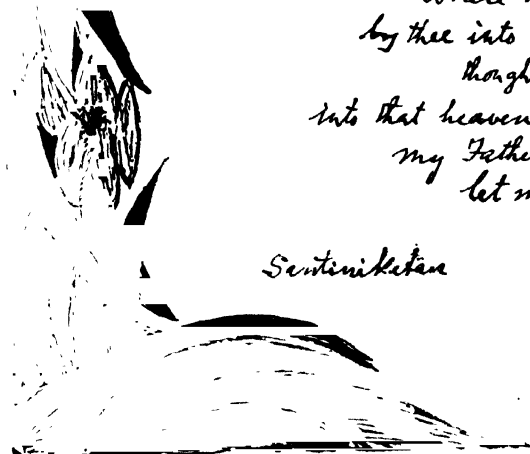 by thee into
into that heaven
my Fathe
let m
Santiniketan